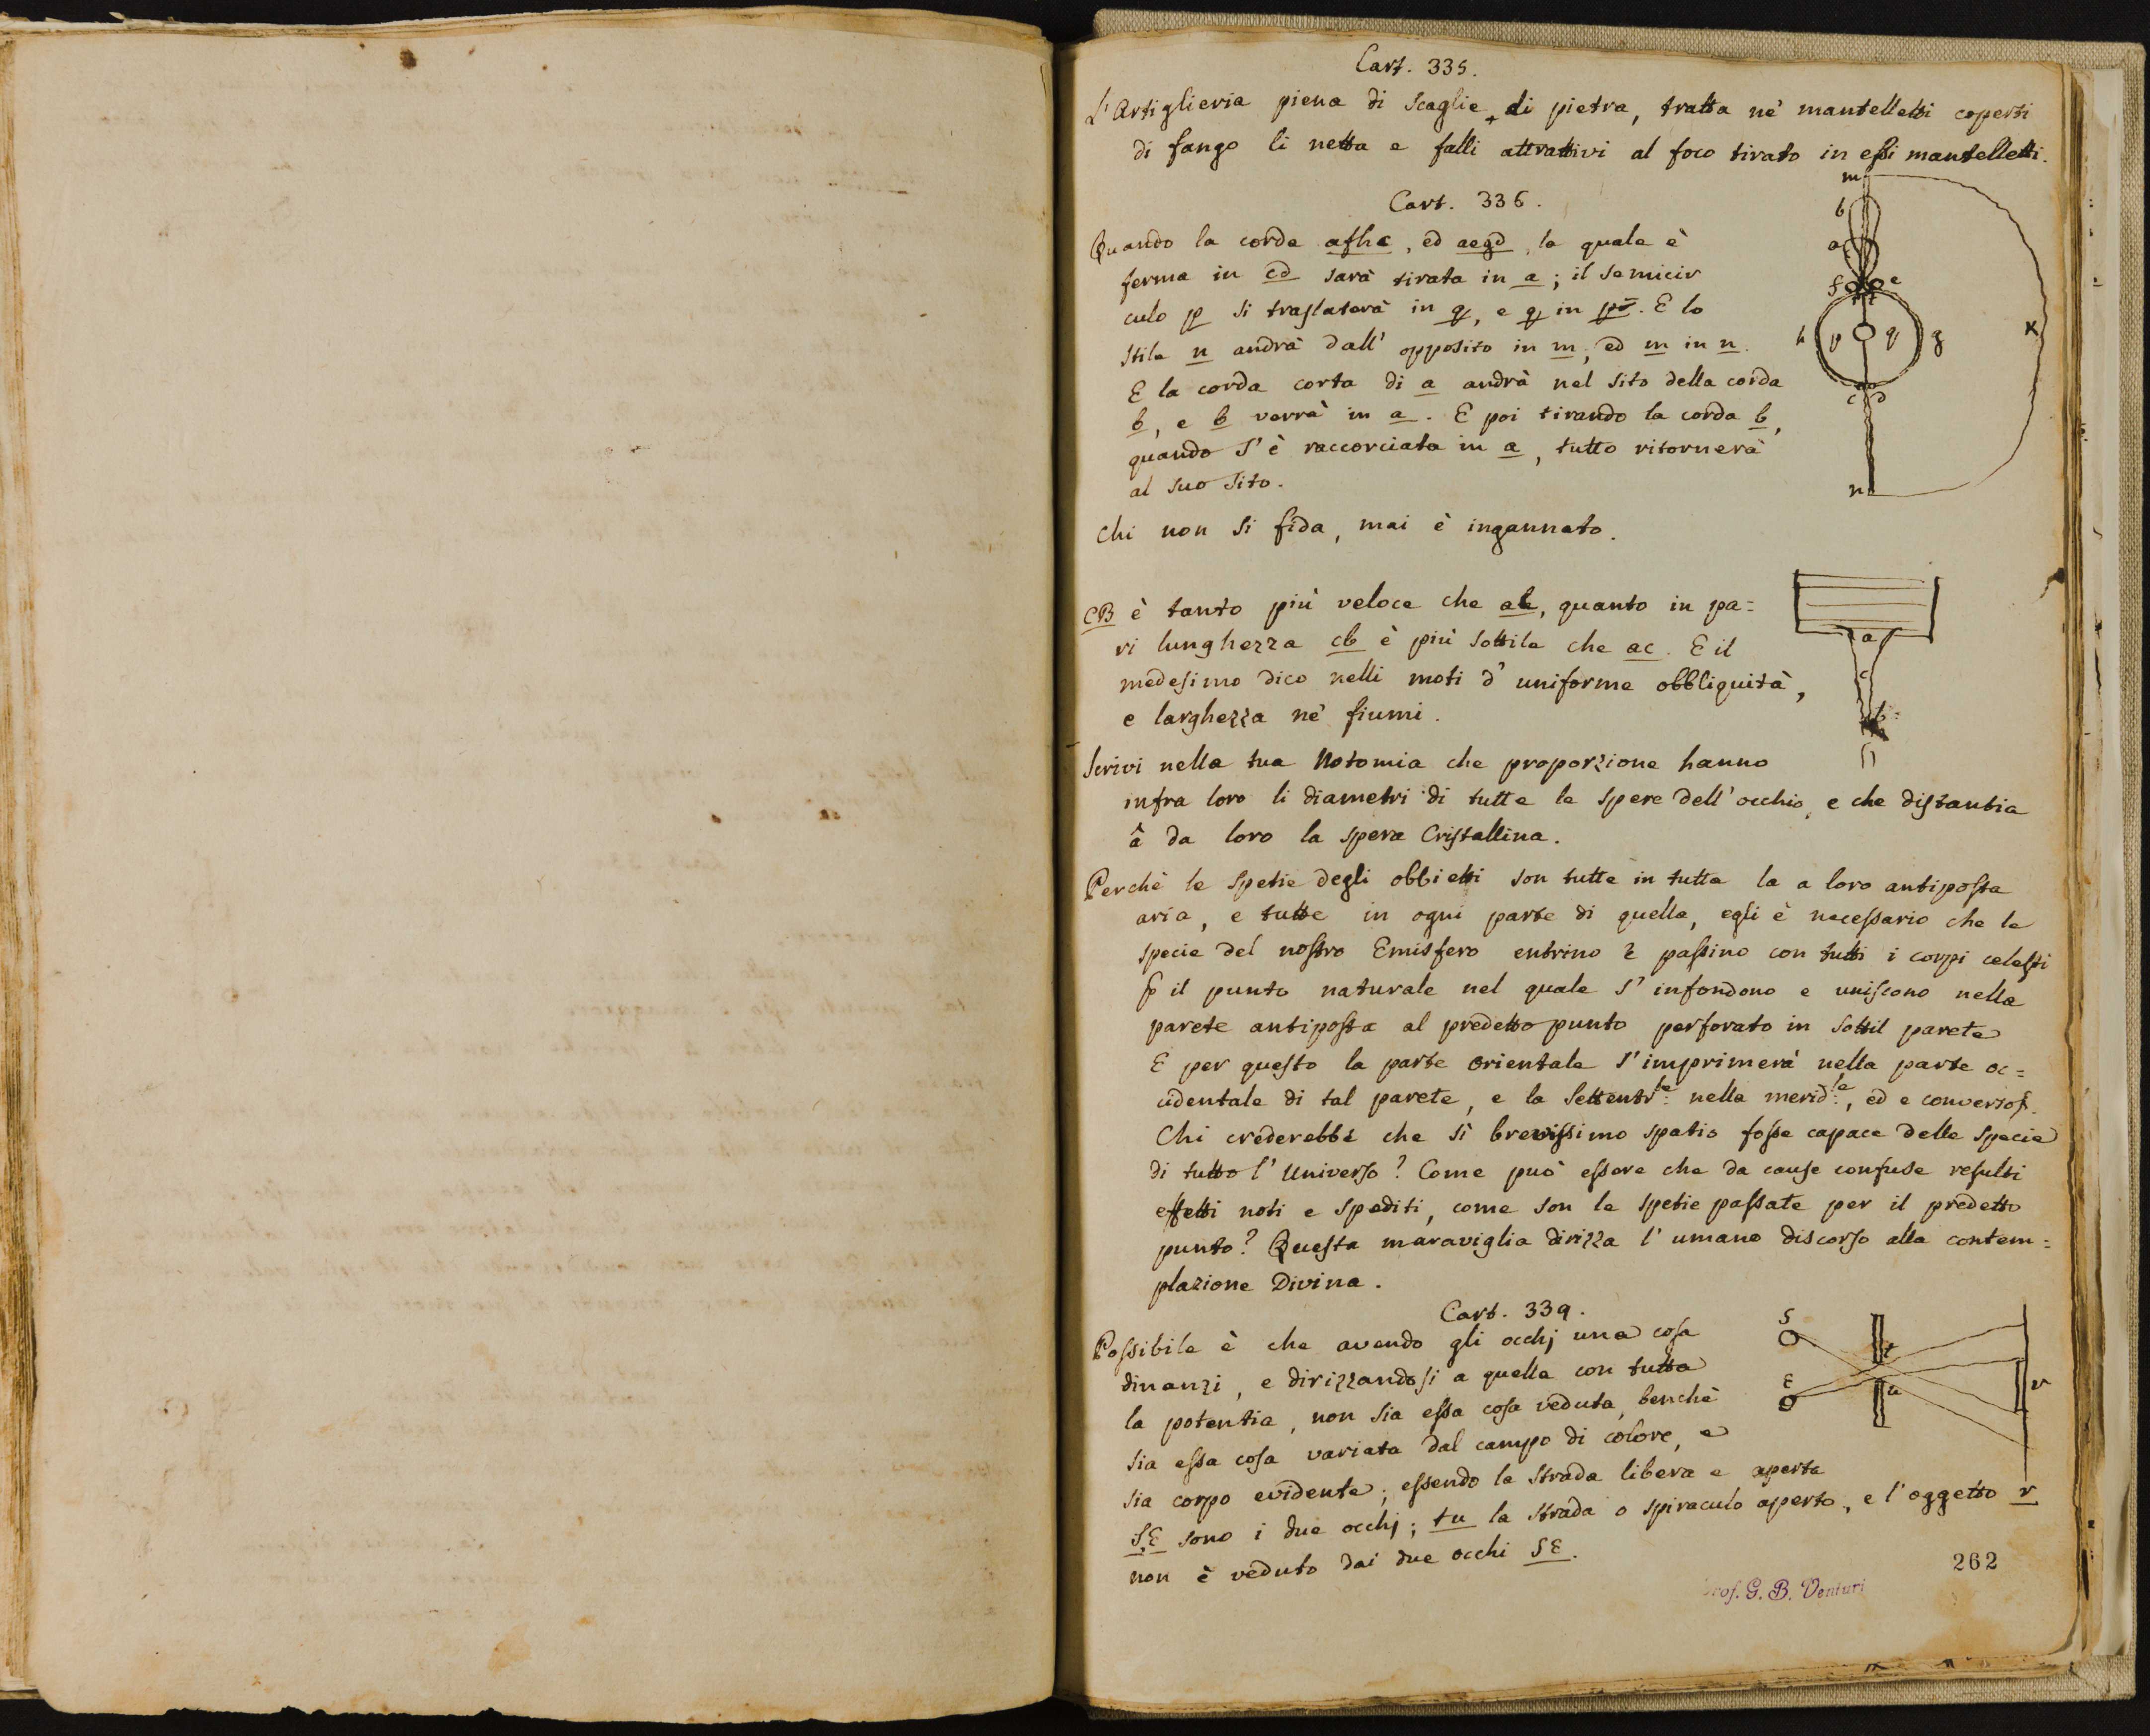 Cart. 335.
L'Artiglieria piena di scaglie di pietra, tratta ne' mantelletti coperti
di fango li netta e falli attrattivi al foco tirato in essi mantelletti.
Cart. 336.
Quando la corda afhc, ed aegd, la quale è
ferma in cd sarà tirata in a; il semicir
culo p si traslaterà in q, e q in p. E lo
stile n andrà dall' opposito in m, ed m in n.
E la corda corta di a andrà nel sito della corda
b, e b verrà in a. E poi tirando la corda b,
quando s'è raccorciata in a, tutto ritornerà
al suo sito.
Chi non si fida, mai è ingannato.
CB è tanto più veloce che ab, quanto in pa=
ri lunghezza cb è più sottile che ac. E il
medesimo dico nelli moti d' uniforme obbliquità,
e larghezza ne' fiumi.
Scrivi nella tua Notomia che proporzione hanno
infra loro li diametri di tutte le spere dell'occhio, e che distantia
â da loro la spera Cristallina.
Perchè le spetie degli obbietti son tutte in tutta la a loro antiposta
aria, e tutte in ogni parte di quella, egli è necessario che le
specie del nostro Emisfero entrino e passino con tutti i corpi celesti
p il punto naturale nel quale s' infondono e uniscono nella
parete antiposta al predetto punto perforato in sottil parete
E per questo la parte orientale s'imprimerà nella parte oc=
cidentale di tal parete, e la Settentr:le nella merid:le, ed e converso.
Chi crederebbe che sì brevissimo spatio fosse capace delle specie
di tutto l' Universo? Come può essere che da cause confuse resulti
effetti noti e spediti, come son le spetie passate per il predetto
punto? Questa maraviglia dirizza l' umano discorso alla contem=
plazione Divina.
Cart. 339.
Possibile è che avendo gli occhj una cosa
dinanzi, e dirizzandosi a quella con tutta
la potentia, non sia essa cosa veduta, benchè
sia essa cosa variata dal campo di colore, e
sia corpo evidente; essendo la strada libera e aperta
S,E sono i due occhj; tu la strada o spiraculo aperto, e l'oggetto r
non è veduto dai due occhi SE.
262
Prof. G. B. Venturi
m
b
a
f
e
h
p
q
g
K
c
d
n
a
c
b
S
t
E
u
r